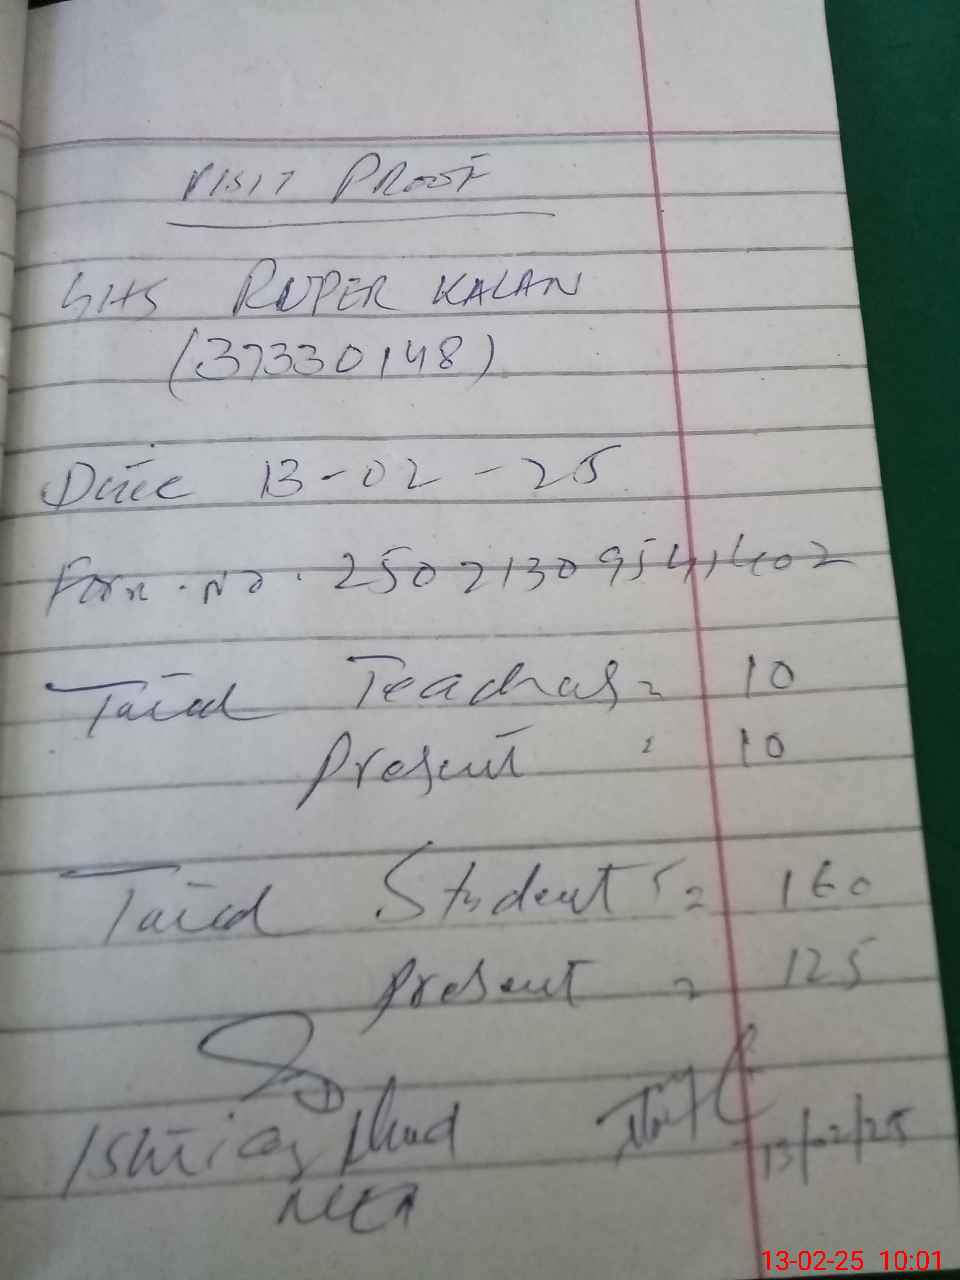 VISIT PROOF
GHS RUPER KALAN
(37330148)
Date 13-02-25
Form.No. 25021309541402
Total Teachers = 10
Present = 10
Total Students = 160
Present = 125
Ishtiaq Ahmad
13/02/25
MEA
13-02-25 10:01